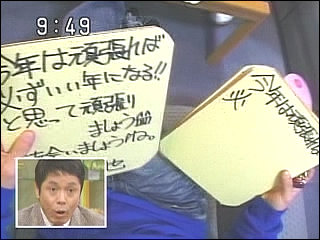 9:49
今年は頑張れば
必ずいい年になる!!
と思って頑張り
ましょう
会いましょうね。
今年は頑張れば